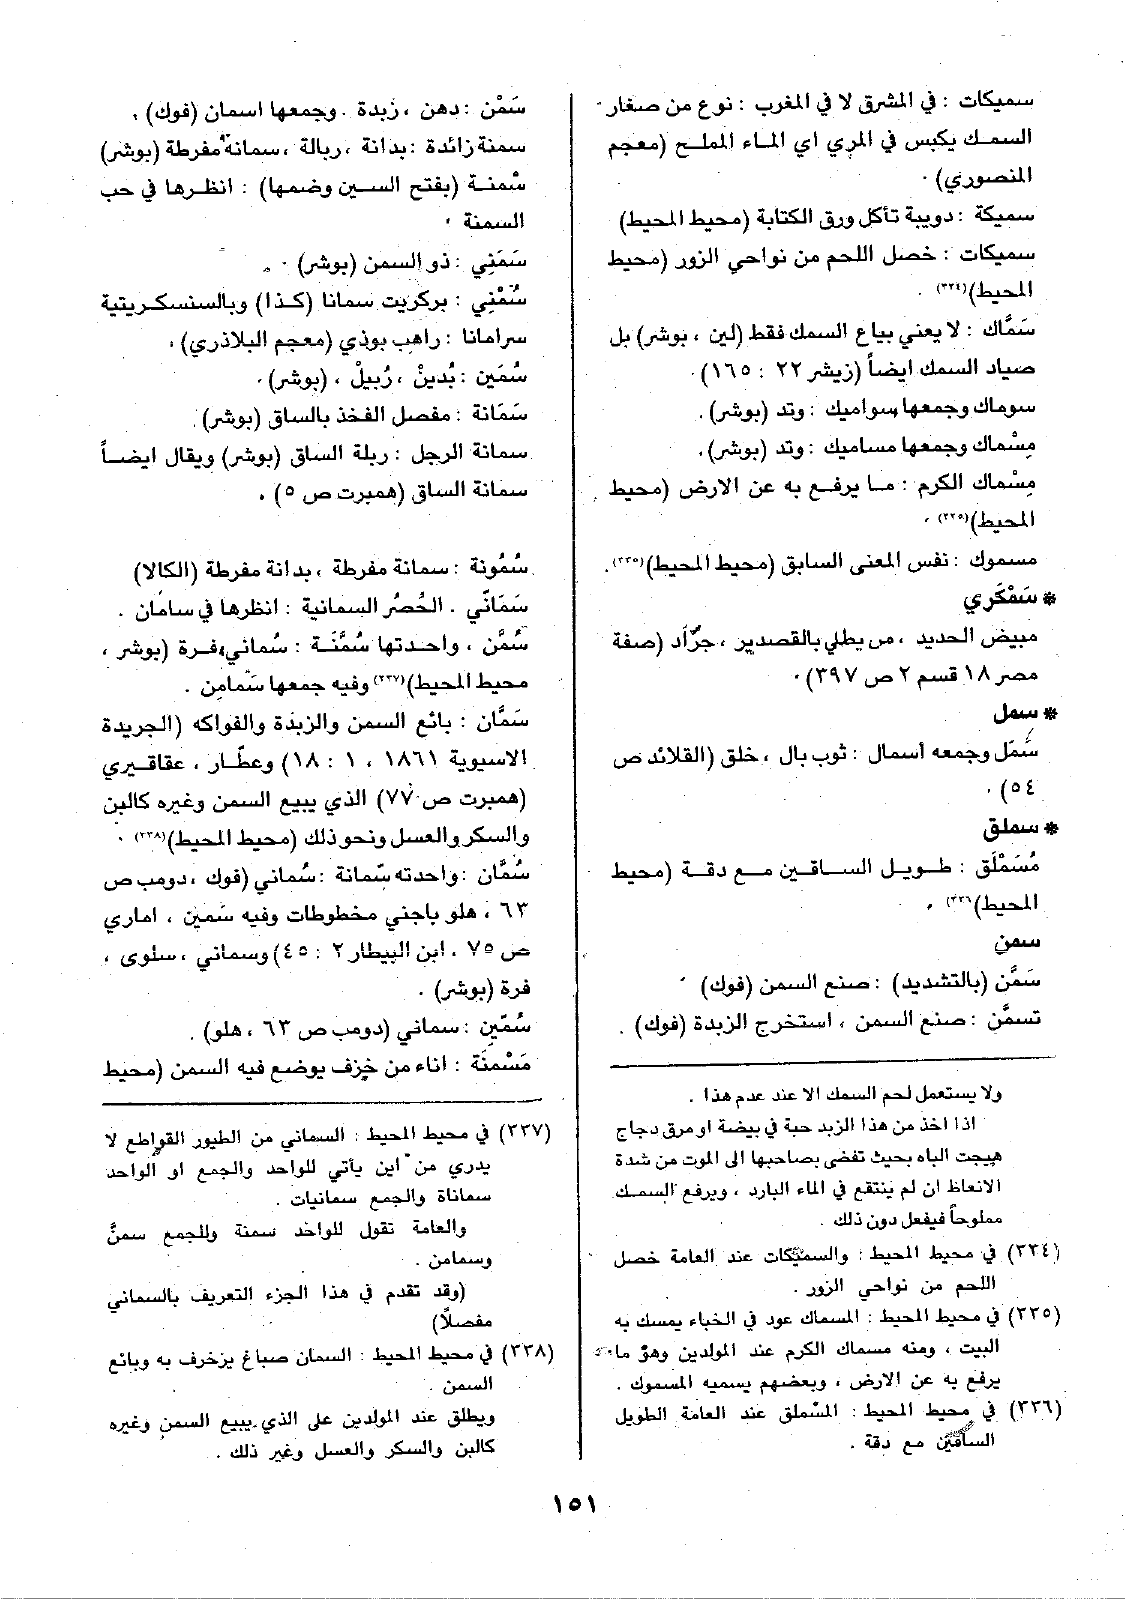 سميكات : في المشرق لا في المغرب : نوع من صغار
السمك يكبس في المري اي الماء المملح (معجم
المنصوري) ·
سميكة : دويبة تأكل ورق الكتابة (محيط المحيط)
سميكات : خصل اللحم من نواحي الزور (محيط
المحيط)(٣٣٤) .
سَمَّاك : لا يعني بياع السمك فقط (لين ، بوشر) بل
صياد السمك ايضاً (زيشر ٢٢ : ١٦٥)·
سوماك وجمعها سواميك : وتد (بوشر).
مِسْماك وجمعها مساميك : وتد (بوشر).
مِسْماك الكرم : ما يرفع به عن الارض (محيط
المحيط)(٣٣٥) .
مسموك : نفس المعنى السابق (محيط المحيط)(٣٣٥).
* سَمْكَري
مبيض الحديد ، من يطلي بالقصدير ، جرّاد (صفة
مصر ١٨ قسم ٢ ص ٣٩٧)·
* سمل
سَمَل وجمعه أسمال : ثوب بال ، خلق (القلائد ص
٥٤) .
* سملق
مُسَمْلَق : طويل الساقين مع دقة (محيط
المحيط)(٣٣٦) .
سمن
سَمَّن (بالتشديد) : صنع السمن (فوك) ·
تسمَّن : صنع السمن ، استخرج الزبدة (فوك) .
ولا يستعمل لحم السمك الا عند عدم هذا .
اذا اخذ من هذا الزبد حبة في بيضة او مرق دجاج
هيجت الباه بحيث تفضى بصاحبها الى الموت من شدة
الانعاظ ان لم ينتقع في الماء البارد ، ويرفع السمك
مملوحاً فيفعل دون ذلك .
(٣٣٤) في محيط المحيط : والسميكات عند العامة خصل
اللحم من نواحي الزور .
(٣٣٥) في محيط المحيط : المسماك عود في الخباء يمسك به
البيت ، ومنه مسماك الكرم عند المولدين وهو ما
يرفع به عن الارض ، وبعضهم يسميه المسموك .
(٣٣٦) في محيط المحيط : المسْملق عند العامة الطويل
الساقين مع دقة .
سَمْن : دهن ، زبدة . وجمعها اسمان (فوك) .
سمنة زائدة : بدانة ، ربالة ، سمانة مفرطة (بوشر)
سُمنة (بفتح السين وضمها) : انظرها في حب
السمنة ·
سَمَني : ذو السمن (بوشر) ·
سُمْني : بركريت سمانا (كذا) وبالسنسكريتية
سرامانا : راهب بوذي (معجم البلاذري) .
سُمَين : بُدينْ ، رُبيلْ ، (بوشر)·
سَمَانة : مفصل الفخذ بالساق (بوشر).
سمانة الرجل : ربلة الساق (بوشر) ويقال ايضاً
سمانة الساق (همبرت ص ٥) .
سُمُونة : سمانة مفرطة ، بدانة مفرطة (الكالا)
سَمَانّي . الحُصُر السمانية : انظرها في سامان .
سُمَّن ، واحدتها سُمَّنَة : سُماني، فرة (بوشر ،
محيط المحيط)(٣٣٧) وفيه جمعها سَمامن .
سَمَّان : بائع السمن والزبدة والفواكه (الجريدة
الاسيوية ١٨٦١ ، ١ : ١٨) وعطّار ، عقاقيري
(همبرت ص ٧٧) الذي يبيع السمن وغيره كالبن
والسكر والعسل ونحو ذلك (محيط المحيط)(٣٣٨) ·
سُمَّان : واحدته سّمانة : سُماني (فوك ، دومب ص
٦٣ ، هلو باجني مخطوطات وفيه سَمين ، اماري
ص ٧٥ ، ابن البيطار ٢ : ٤٥) وسماني ، سلوى ،
فرة (بوشر) .
سُمّين : سماني (دومب ص ٦٣ ، هلو).
مَسْمنَة : اناء من خزف يوضع فيه السمن (محيط
(٣٣٧) في محيط المحيط : السماني من الطيور القواطع لا
يدري من اين يأتي للواحد والجمع او الواحد
سماناة والجمع سمانيات .
والعامة تقول للواحد سمنة وللجمع سمنَّ
وسمامن .
(وقد تقدم في هذا الجزء التعريف بالسماني
مفصلاً)
(٣٣٨) في محيط المحيط : السمان صباغ يزخرف به وبائع
السمن .
ويطلق عند المولدين على الذي يبيع السمن وغيره
كالبن والسكر والعسل وغير ذلك .
١٥١